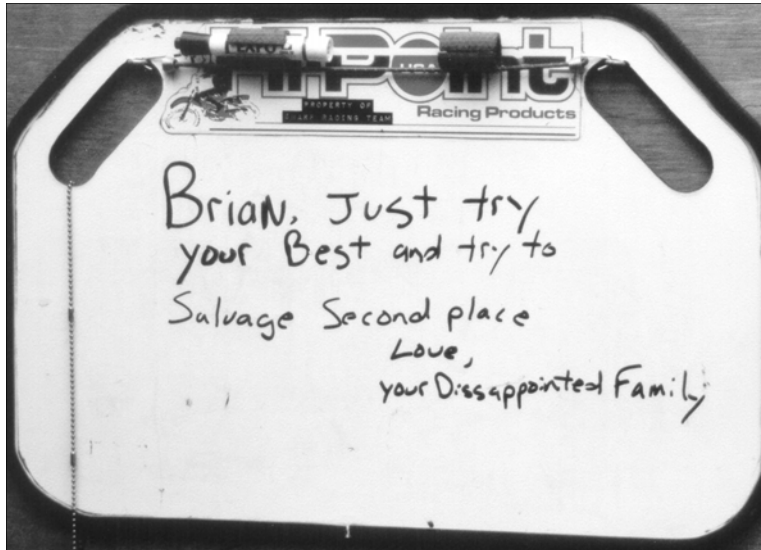 EXPO
PitPoint
USA
Racing Products
PROPERTY OF
SHARK RACING TEAM
Brian, Just try
your Best and try to
Salvage Second place
Love,
your Dissappointed Family